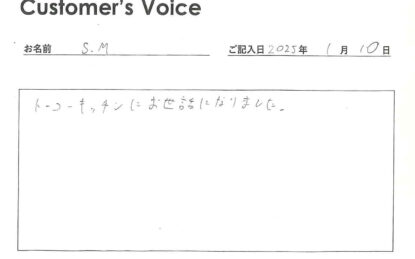 Customer's Voice
お名前 S.M ご記入日 2025年 1月 10日
トーコーキッチンにお世話になりました。